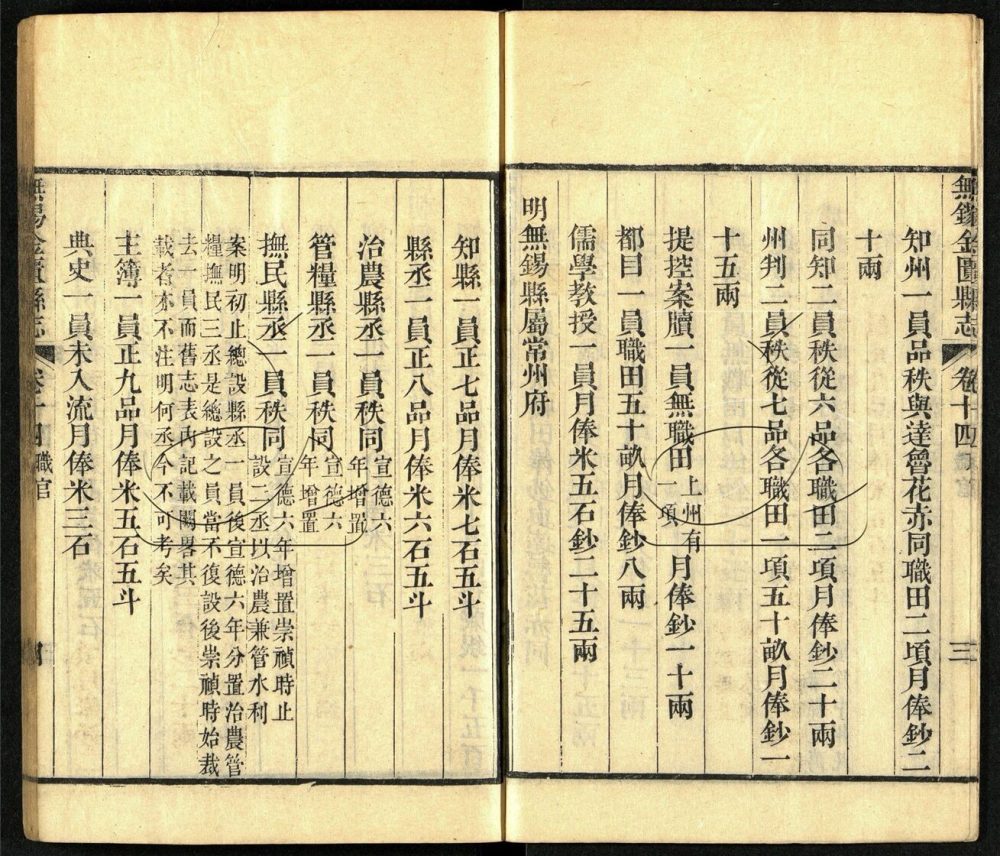 無錫金匱縣志 卷十四 職官 三
知州一員品秩與達魯花赤同職田二項月俸鈔二
十兩
同知二員秩從六品各職田二項月俸鈔二十兩
州判二員秩從七品各職田一項五十畝月俸鈔一
十五兩
提控案牘一員無職田上州有一項月俸鈔一十兩
都目一員職田五十畝月俸鈔八兩
儒學教授一員月俸米五石鈔二十五兩
明無錫縣屬常州府
知縣一員正七品月俸米七石五斗
縣丞一員正八品月俸米六石五斗
治農縣丞一員秩同宣德六年增置
管糧縣丞一員秩同宣德六年增置
撫民縣丞一員秩同宣德六年增置崇禎時止
設二丞以治農兼管水利
案明初止總設縣丞一員後宣德六年分置治農管
糧撫民三丞是總設之員當不復設後崇禎時始裁
去一員而舊志表內記載闕畧其
載者亦不注明何丞今不可考矣
主簿一員正九品月俸米五石五斗
典史一員未入流月俸米三石
無錫金匱縣志 卷十四 職官